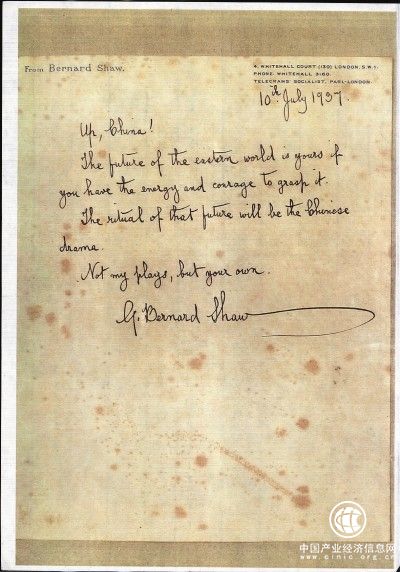 From Bernard Shaw.
4, WHITEHALL COURT (130) LONDON, S.W.1.
PHONE: WHITEHALL 3160.
TELEGRAMS: SOCIALIST, PARL-LONDON.
10th July 1937.
Up, China!
The future of the eastern world is yours if
you have the energy and courage to grasp it.
The ritual of that future will be the Chinese
drama.
Not my plays, but your own.
G. Bernard Shaw
中国产业经济信息网
www.cinic.org.cn